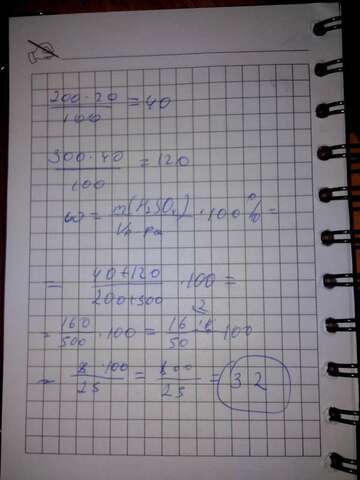 200·20/100 = 40
300·40/100 = 120
ω = m(H₂SO₄)/ · 100% =
= 40+120/200+300 · 100 =
= 160/500 · 100 = 16/50 · 100
= 8·100/25 = 800/25 = 32